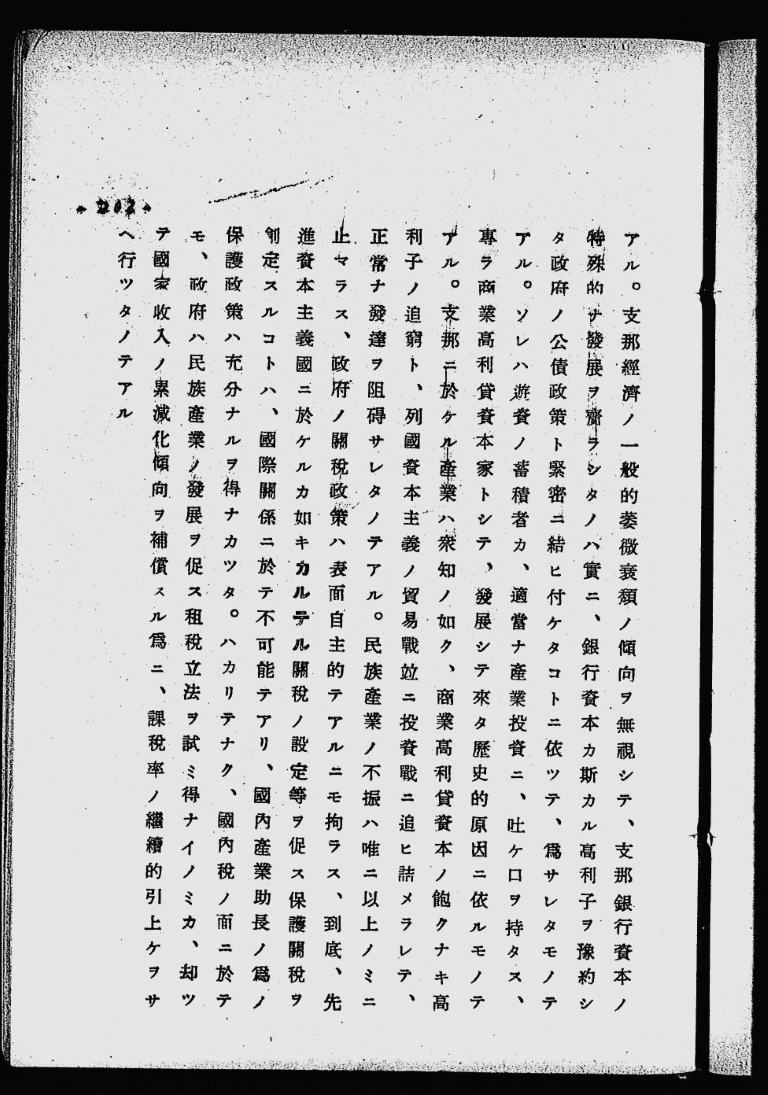 アル。支那經濟ノ一般的萎微衰頽ノ傾向ヲ無視シテ、支那銀行資本ノ
特殊的ナ發展ヲ齎ラシタノハ實ニ、銀行資本カ斯カル高利子ヲ豫約シ
タ政府ノ公債政策ト緊密ニ結ヒ付ケタコトニ依ツテ、爲サレタモノテ
アル。ソレハ遊資ノ蓄積者カ、適當ナ産業投資ニ、吐ケ口ヲ持タス、
專ラ商業高利貸資本家トシテ、發展シテ來タ歷史的原因ニ依ルモノテ
アル。支那ニ於ケル産業ハ衆知ノ如ク、商業高利貸資本ノ飽クナキ高
利子ノ追窮ト、列國資本主義ノ貿易戰竝ニ投資戰ニ追ヒ詰メラレテ、
正常ナ發達ヲ阻碍サレタノテアル。民族産業ノ不振ハ唯ニ以上ノミニ
止マラス、政府ノ關稅政策ハ表面自主的テアルニモ拘ラス、到底、先
進資本主義國ニ於ケルカ如キカルテル關稅ノ設定等ヲ促ス保護關稅ヲ
制定スルコトハ、國際關係ニ於テ不可能テアリ、國内產業助長ノ爲ノ
保護政策ハ充分ナルヲ得ナカツタ。ハカリテナク、國内稅ノ面ニ於テ
モ、政府ハ民族産業ノ發展ヲ促ス租稅立法ヲ試ミ得ナイノミカ、却ツ
テ國家收入ノ累減化傾向ヲ補償スル爲ニ、課稅率ノ繼續的引上ケヲサ
ヘ行ツタノテアル
202